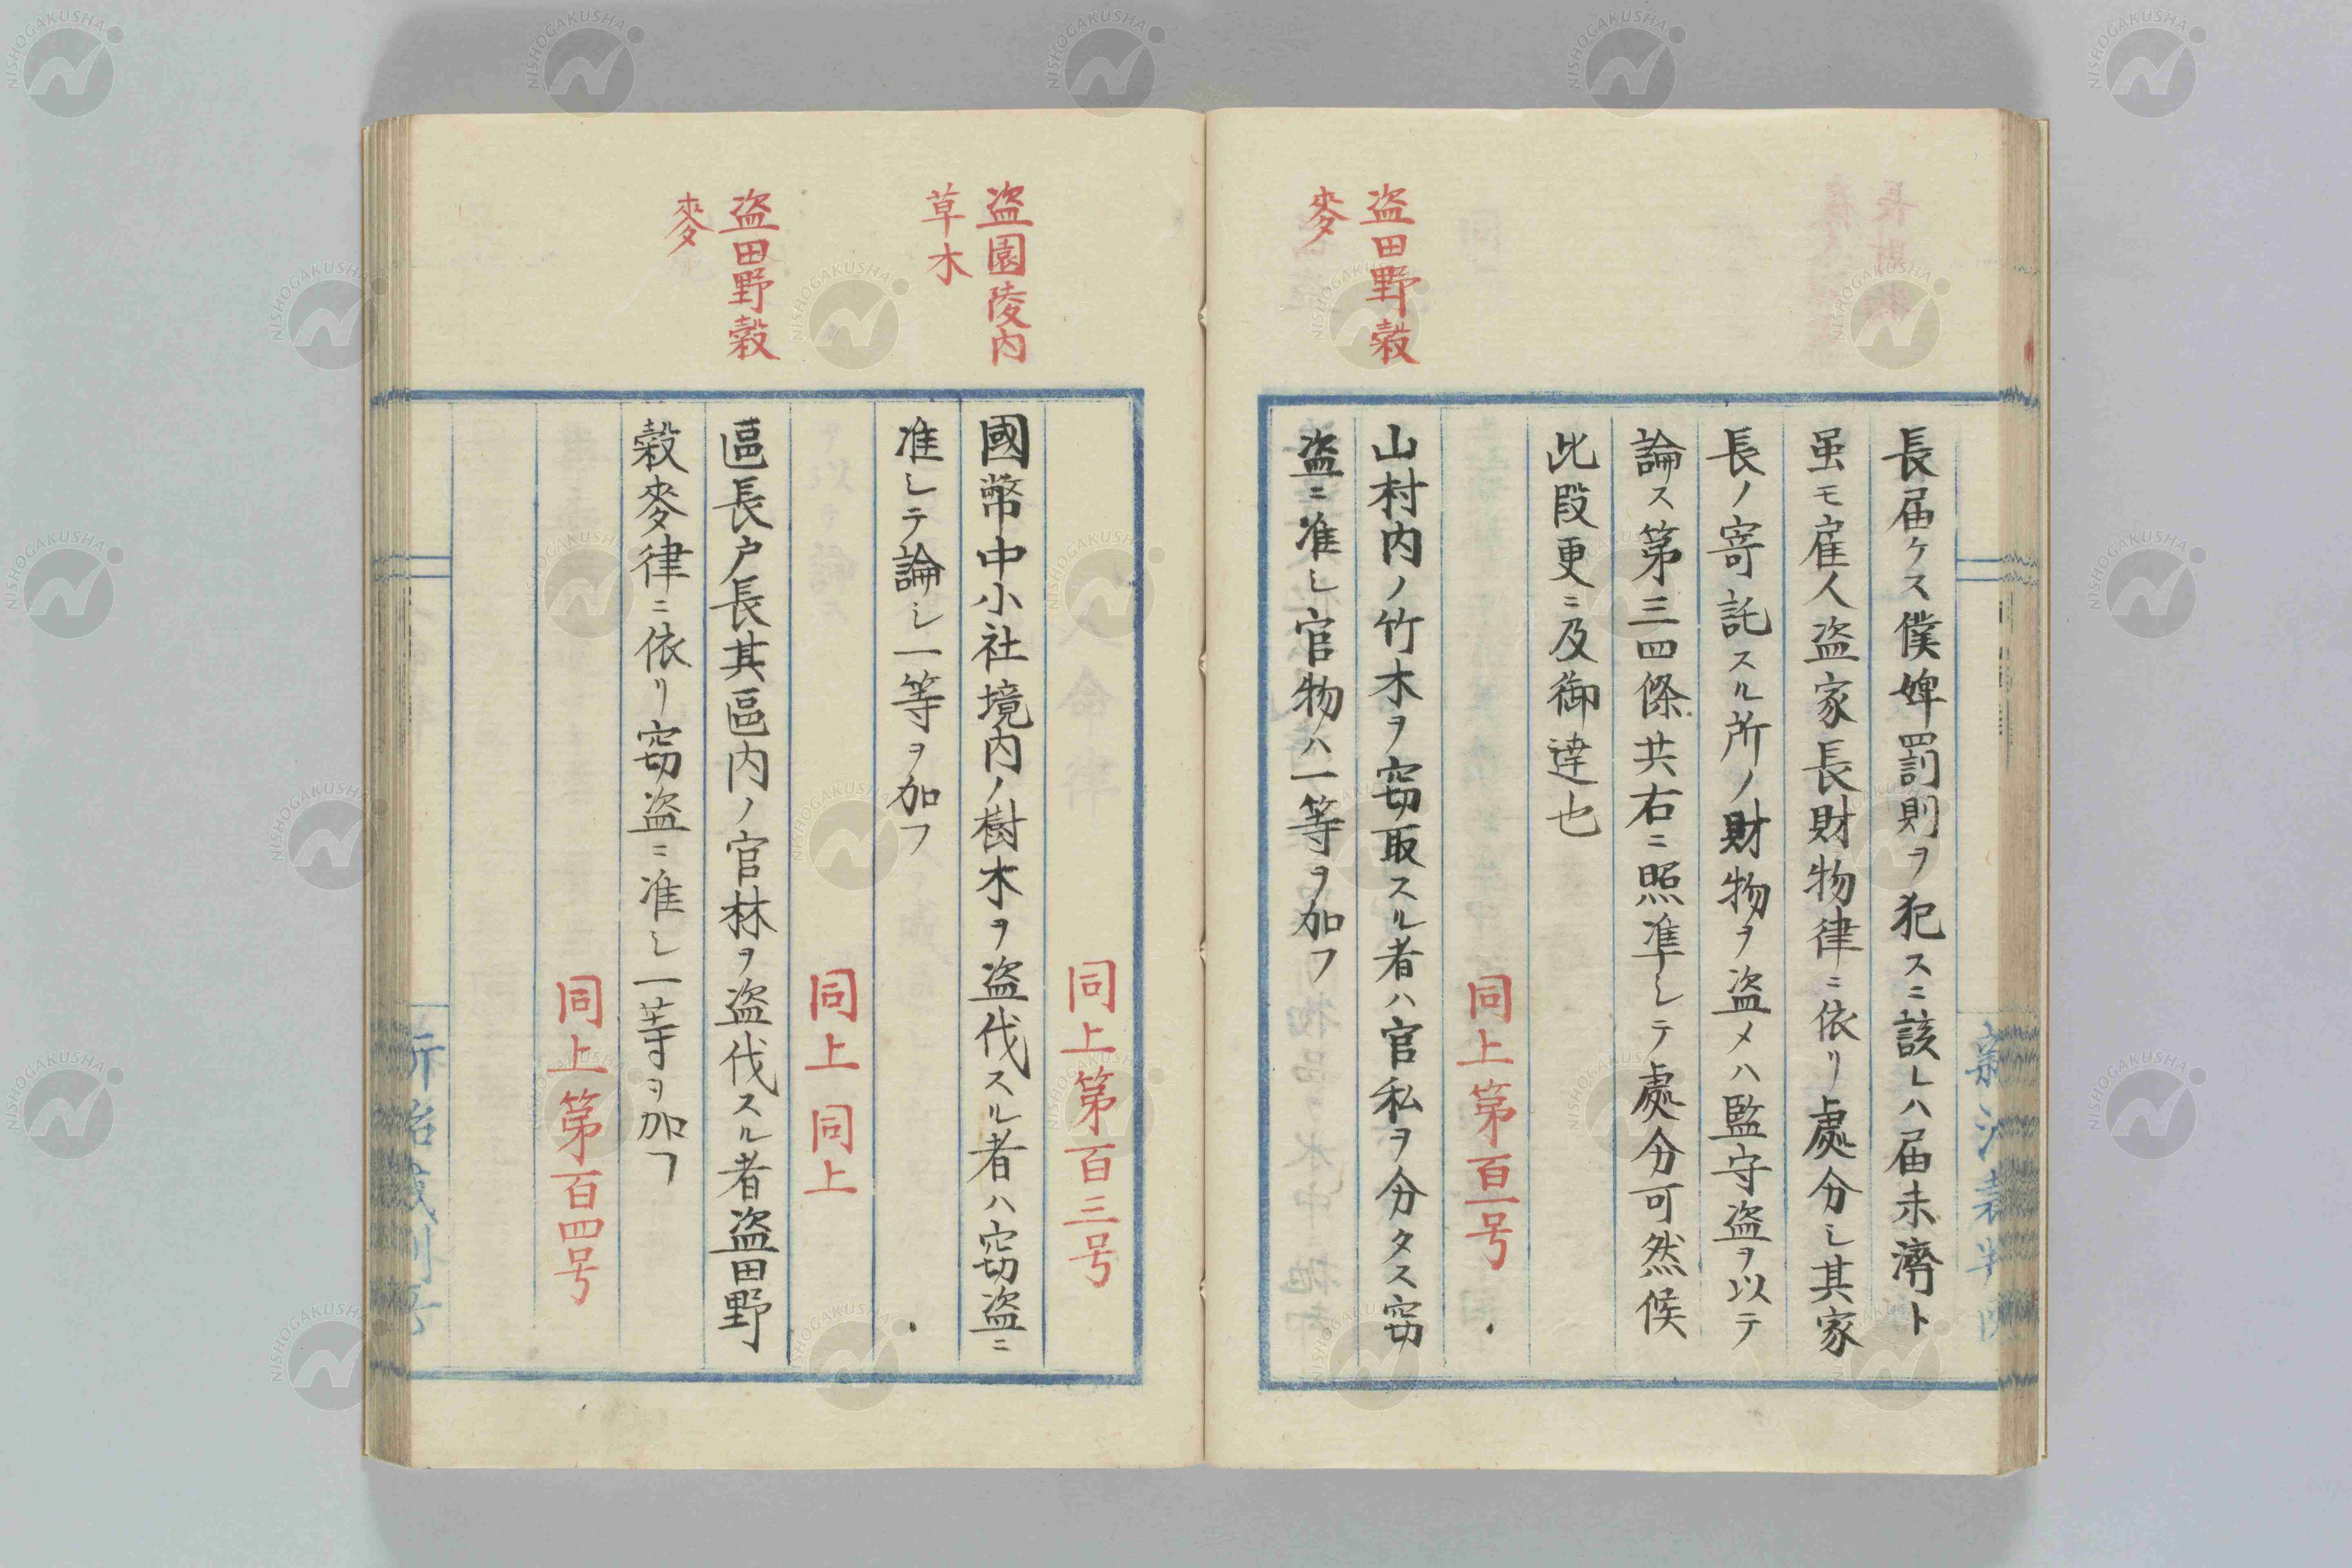 長届ケス僕婢罰則ヲ犯スニ該レハ届未濟ト
虽モ雇人盗家長財物律ニ依リ處分シ其家
長ノ寄託スル所ノ財物ヲ盗メハ監守盗ヲ以テ
論ス第三四條共右ニ照準シテ處分可然候
此段更ニ及御達也
同上第百一号
盗田野穀
麥
山村内ノ竹木ヲ窃取スル者ハ官私ヲ分タス窃
盗ニ准シ官物ハ一等ヲ加フ
同上第百三号
盗園陵内
草木
國幣中小社境内ノ樹木ヲ盗伐スル者ハ窃盗ニ
准シテ論シ一等ヲ加フ
同上同上
盗田野穀
麥
區長戸長其區内ノ官林ヲ盗伐スル者盗田野
穀麥律ニ依リ窃盗ニ准シ一等ヲ加フ
同上第百四号
NISHOGAKUSHA